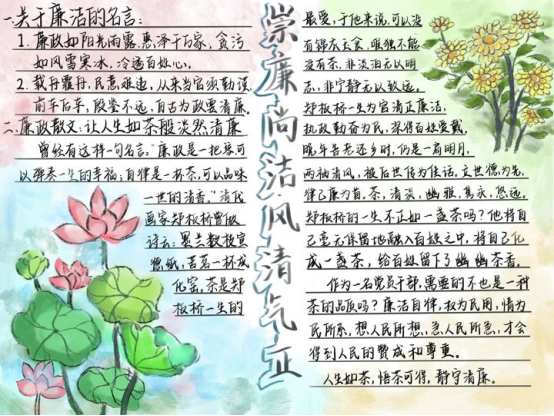 崇廉尚洁风清气正
一.关于廉洁的名言:
1. 廉政如阳光雨露,惠泽千万家,贪污
如风雪寒冰,冷透百姓心。
2. 载舟覆舟,民意难违,从来当官须勤谨
前车后车,殷鉴不远,自古为政要清廉。
二.廉政散文:让人生如茶般淡然清廉
曾经有这样一句名言:"廉政是一把琴可
以弹奏一生的幸福;自律是一杯茶,可以品味
一世的清香。"清代
画家郑板桥曾做
诗云:墨兰数枝宣
德纸,苦茗一杯成
化窑。茶是郑
板桥一生的
最爱,于他来说,可以没
有锦衣玉食,唯独不能
没有茶。非淡泊无以明
志,非宁静无以致远。
郑板桥一生为官清正廉洁,
执政勤奋为民,深得百姓爱戴,
晚年告老还乡时,仍是一肩明月,
两袖清风,被后世传为佳话。立世德为先,
律己廉为首。茶,清淡,幽雅,隽永,悠远。
郑板桥的一生不正如一盏茶吗?他将自
己毫无保留地融入百姓之中,将自己化
成一盏茶,给百姓留下了幽幽茶香。
作为一名党员干部,需要的不也是一种
茶的品质吗?廉洁自律,权为民用,情为
民所系,想人民所想,急人民所急,才会
得到人民的赞成和尊重。
人生如茶,悟茶可得,静守清廉。